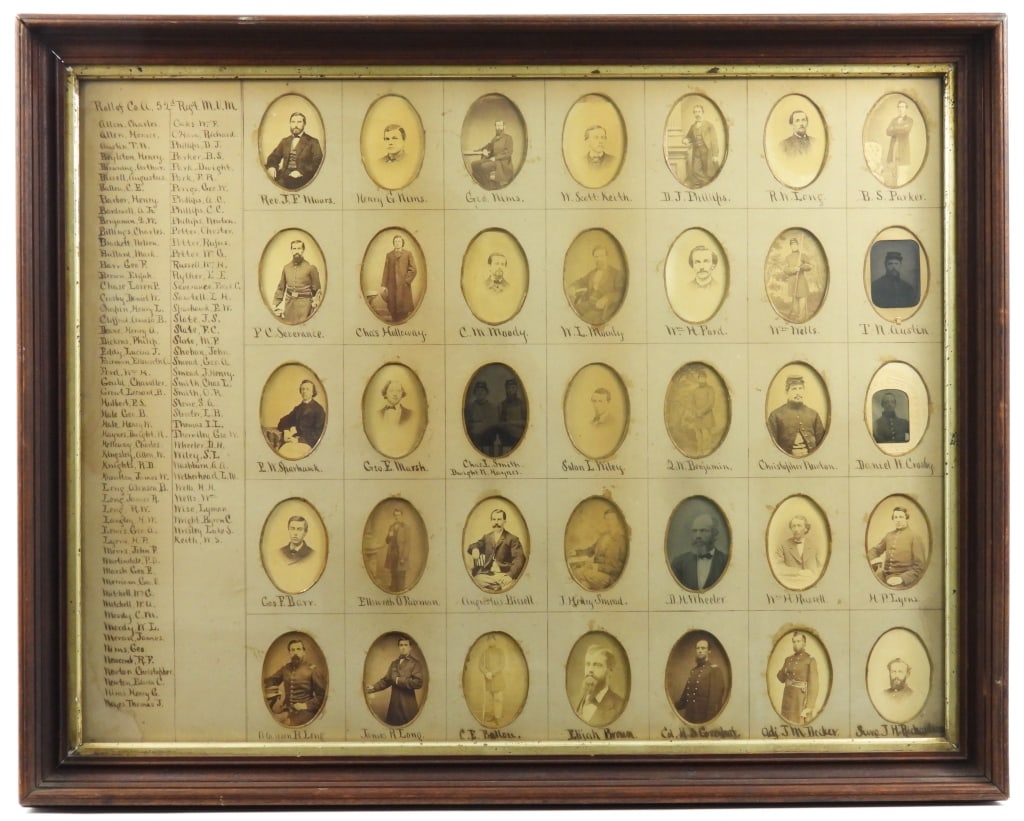 Roll of Co. A. 52d Regt. M.V.M.
Allen, Charles.
Allen, Horace.
Austin T. N.
Boylston Henry.
Browning, Arthur.
Bissell, Augustus.
Ballou, C. E.
Barber, Henry.
Bardwell, A. Jr.
Benjamin, S. W.
Billings, Charles.
Brackett, Nelson.
Bullard, Mark.
Barr Geo. F.
Brown Elijah.
Chase Loren P.
Crosby Daniel W.
Chapin, Henry L.
Clifford, Alonzo B.
Deane, Henry A.
Dickins, Philip.
Eddy Lucius J.
Fairman Ellsworth O.
Ford, Wm H.
Gould, Chandler.
Grout, Leonard B.
Hulbert, P. S.
Hale Geo. B.
Hale, Henry W.
Haynes, Dwight, N.
Holloway, Charles.
Kingsley, Allen W.
Knights, H. D.
Long Alanson B.
Long James R.
Long, R. W.
Langley, H. W.
Lewis, Geo. A.
Lyons, H. P.
Moors, John F.
Martindale, F. D.
Marsh Geo. E.
Merriam, Geo. E.
Mitchell Wm G.
Mitchell, W. A.
Moody C. M.
Moody W. L.
Moran, James.
Nims, Geo.
Newcomb, R. F.
Newton Christopher.
Newton Edwin C.
Nims Henry G.
Noyes Thomas J.
Oaks W. F.
O'Hara, Richard.
Phillips, D. J.
Parker, B. S.
Park, Dwight.
Park, F. R.
Perigo, Geo. W.
Phillips, A. C.
Phillips, C. C.
Phillips, Newton.
Potter, Chester.
Potter, Rufus.
Potter W. G.
Russell W. H.
Ryther, L. E.
Severance, Pros. C.
Sawtell, L. H.
Sparhawk, E. W.
Slate, J. S.
Slate, F. C.
Slate, W. P.
Sheban, John
Smead, Geo. A.
Smead, J. Henry.
Smith Chas L.
Smith, U. P.
Stone, S. A.
Streeter, L. B.
Thomas, I. L.
Thorniley, Geo. W.
Wheeler, D. H.
Wiley, S. L.
Washburn, G. A.
Wetherhead, L. W.
Wells, H. H.
Wells, Wm
Wise, Lyman
Wright, Byron C.
Wrisley Luke S.
Keith, W. S.
Rev. J. F. Moors.
Henry G. Nims.
Geo. Nims.
W. Scott Keith.
D. J. Phillips.
R. W. Long.
B. S. Parker.
P. C. Severance.
Chas Holloway.
C. M. Moody.
W. L. Moody.
Wm H. Ford.
Wm Wells.
T. N. Austin
E. W. Sparhawk.
Geo E. Marsh.
Chas L. Smith.
Dwight N. Haynes.
Solon L. Wiley.
S. W. Benjamin.
Christopher Newton.
Daniel W. Crosby
Geo. F. Barr.
Ellsworth O. Fairman.
Augustus Bissell
J. Henry Smead.
D. H. Wheeler.
Wm H. Russell.
H. P. Lyons.
Alanson B. Long
James R. Long.
C. E. Ballou.
Elijah Brown
Col. H. S. Greenleaf.
Adj. J. M. Decker.
Surg. J. H. Richardson